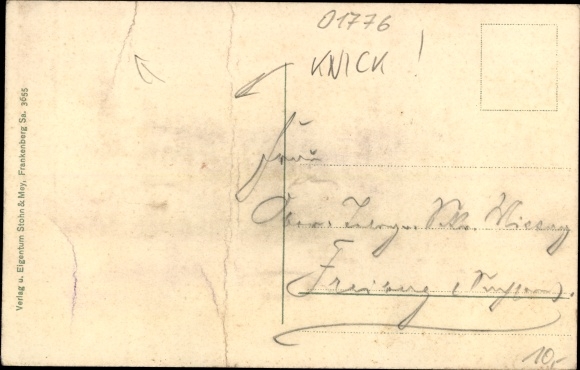 01776
KNICK!
Verlag u. Eigentum Stohn & Mey, Frankenberg Sa. 3655
Frau
Freiberg (Sachsen).
10,-